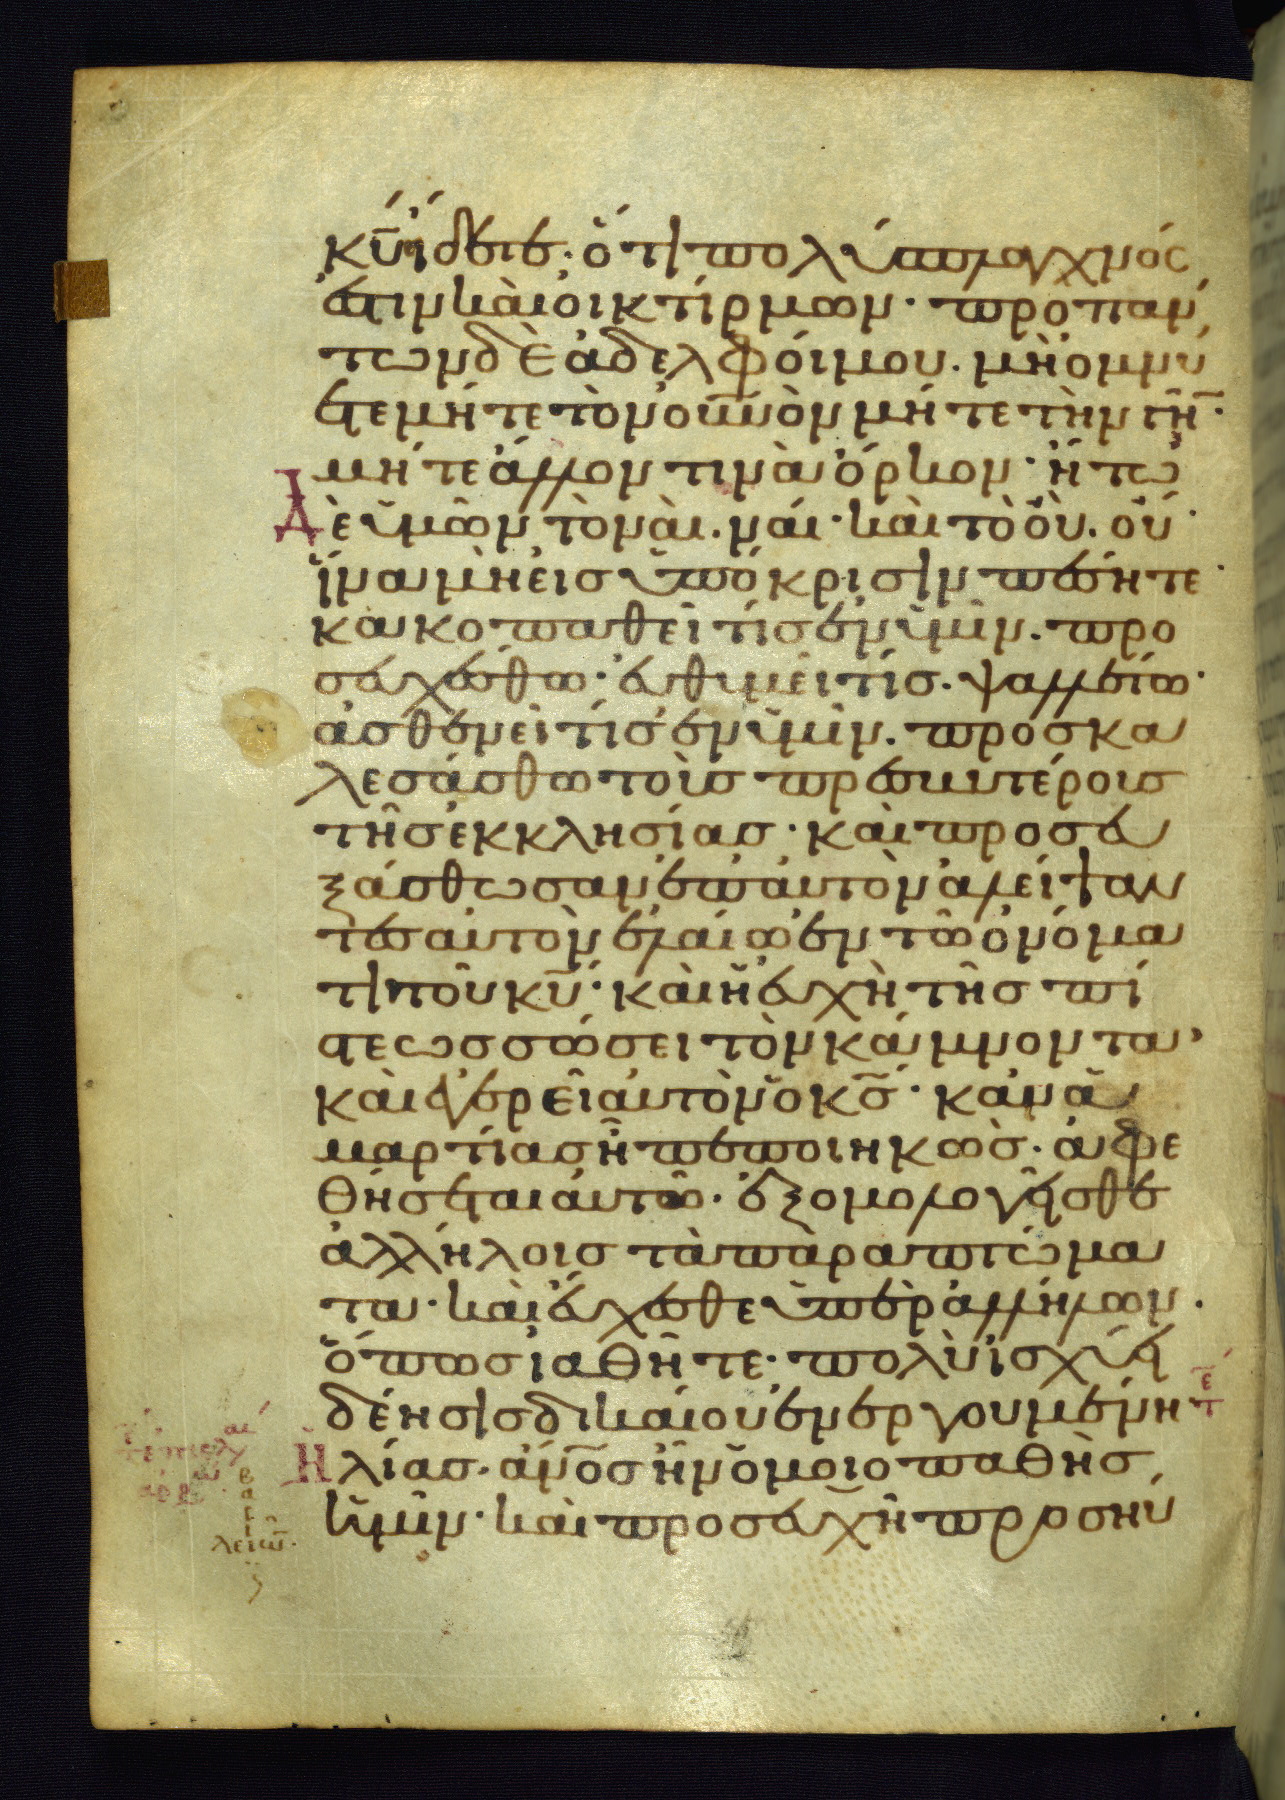 κῡ ἴδετε· ὅτι πολύσπλαγχνός
ἐστιν καὶ οἰκτίρμων· προ παν
των δὲ ἀδελφοί μου. μὴ ομνύ
ετε μήτε τὸν οῡνὸν μήτε τὴν γῆ̄·
μήτε ἄλλον τινὰ ὅρκον· ἤτω
Δὲ ὑμῶν τὸ ναὶ. ναί· καὶ τὸ οὒ. οὔ·
ἵνα μὴ εἰς ὑπόκρισιν πέσητε·
κακοπαθεῖ τίς ἐν ὑμῖν. προ
σευχέσθω· εὐθυμεῖ τίς. ψαλλέτω·
ἀσθενεῖ τίς ἐν ὑμῖν. προσκα
λεσάσθω τοὺς πρεσβυτέρους
τῆς ἐκκλησίας· καὶ προσευ
ξάσθωσαν ἐπ' ἀυτὸν ἀλείψαν
τες αὐτὸν ἐλαίω ἐν τῶ ὀνόμα
τι τοῦ κῡ· καὶ ἡ εὐχὴ τῆς πί
στεως σώσει τὸν κάμνοντα·
καὶ ἐγερεῖ αὐτὸν ὁ κς̄· κἀν ἁ
μαρτίας ἦ πεποιηκὼς· ἀφε
θήσεται ἀυτῶ· ἐξομολογεῖσθε
ἀλλήλοις τὰ παραπτώμα
τα· καὶ εὔχεσθε ὑπὲρ ἀλλήλων·
ὅπως ἰαθῆτε· πολὺ ἰσχύει
δέησις δικαίου ἐνεργουμένη
Ἠλίας· ἄν̄ος ἦν ὁμοιοπαθὴς
ἡμῖν· καὶ προσευχῆ προσηύ